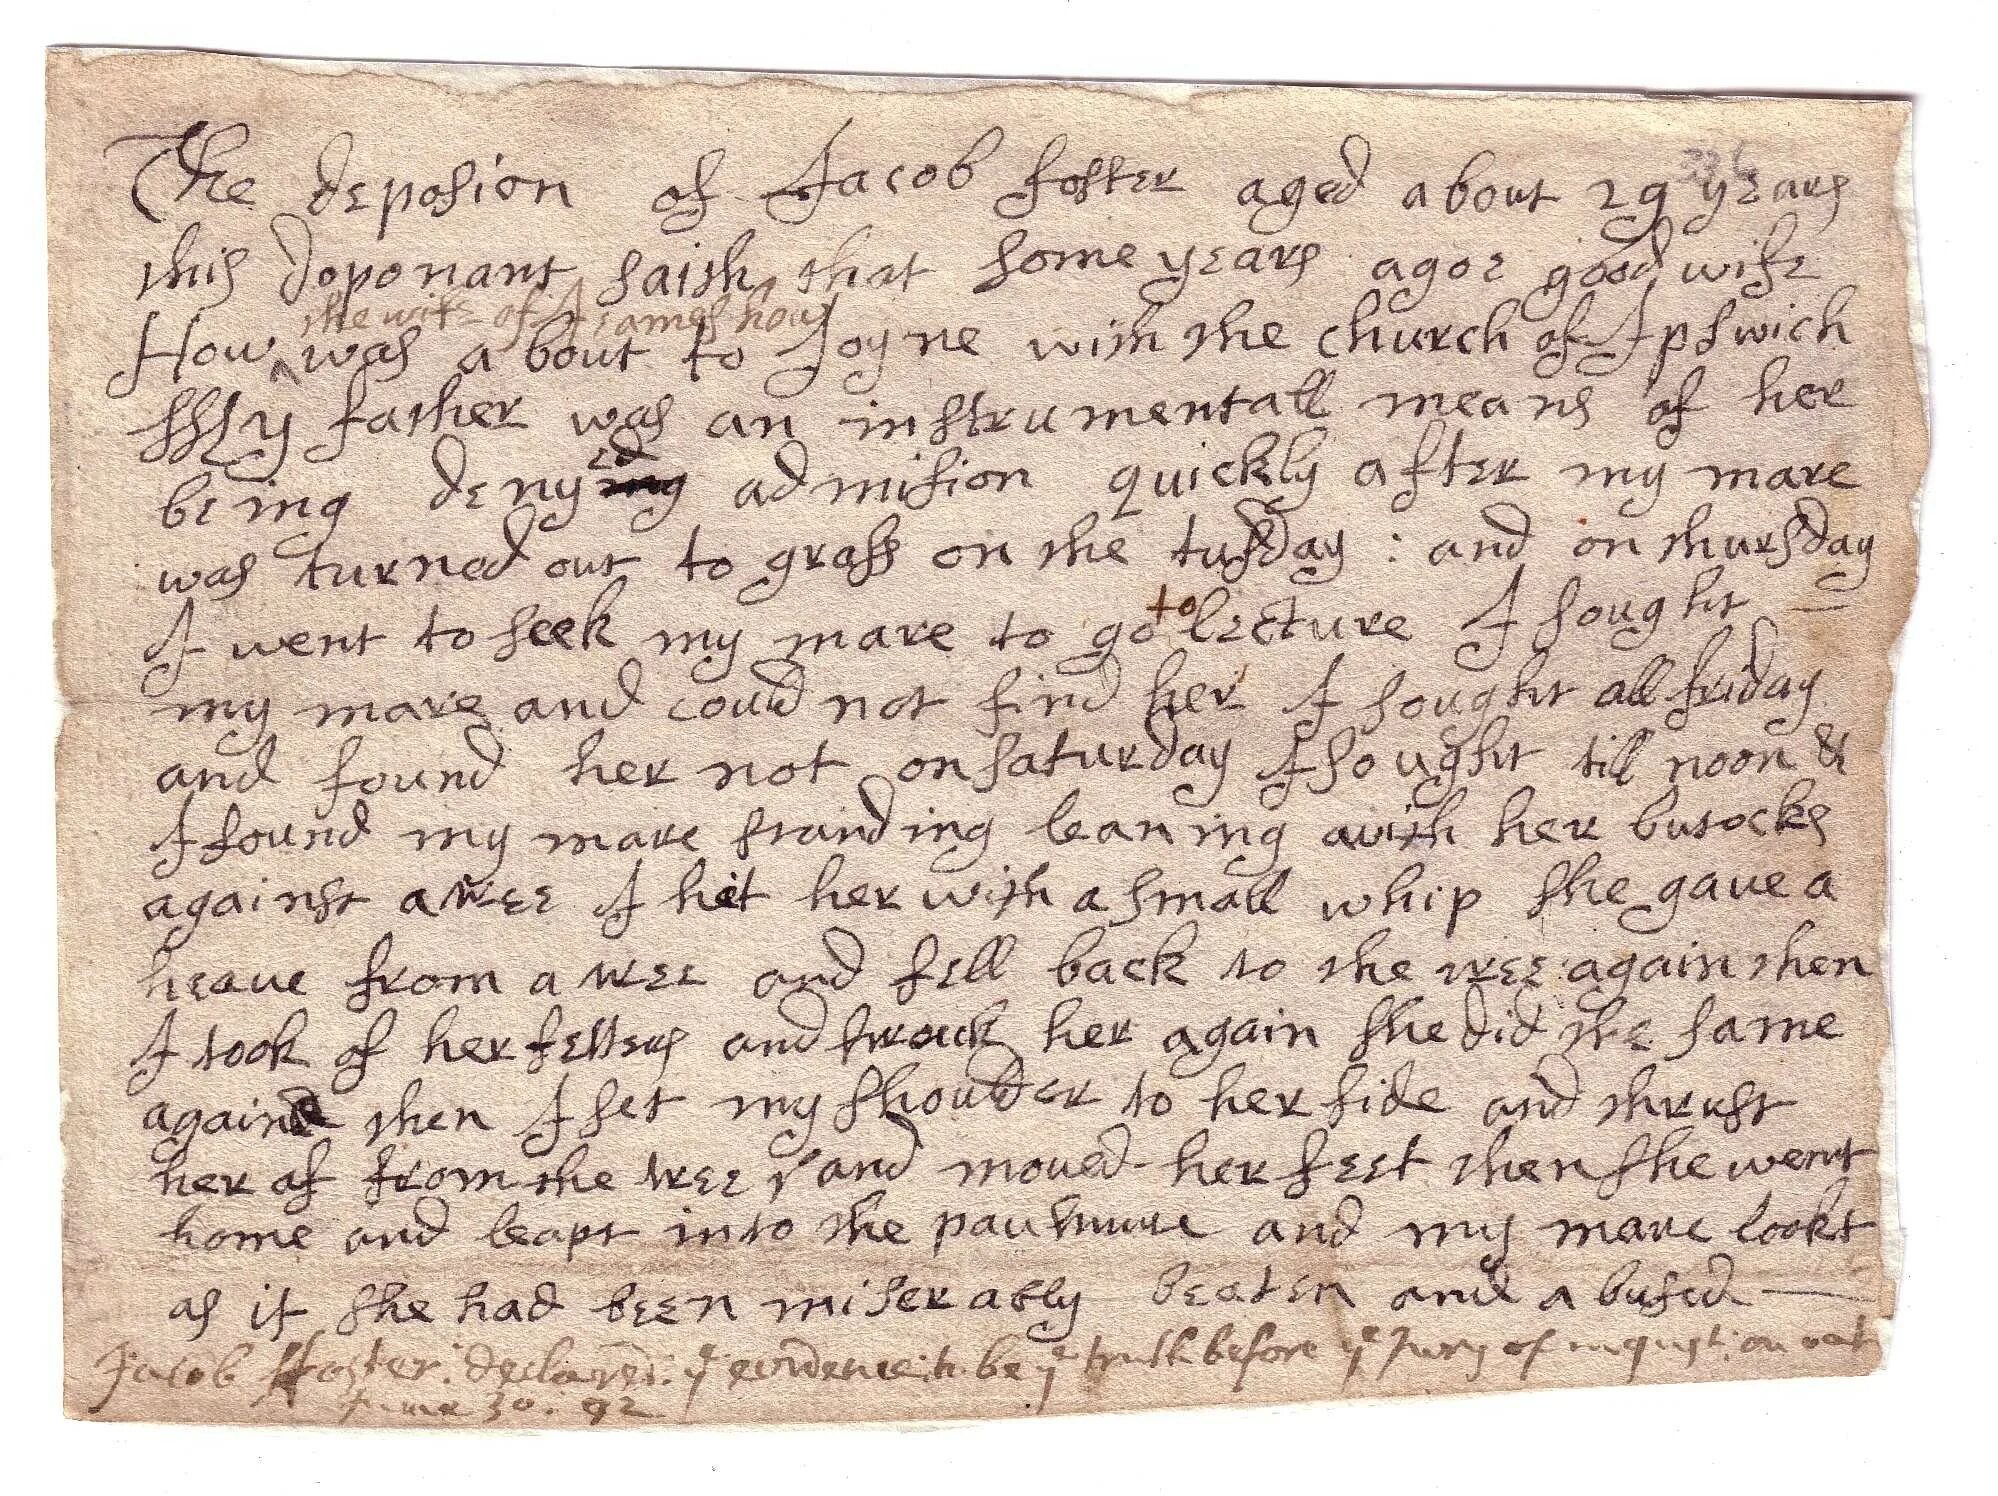 The deposion of Jacob foster aged about 29 years
this doponant saith that some years agoe good wife
the wife of James how
How was about to Joyne with the church of Ipswich
My father was an instrumentall means of her
being denyed admision quickly after my mare
was turned out to grass on the tusday : and on thursday
I went to seek my mare to go to lecture I sought
my mare and could not find her I sought all friday
and found her not on saturday I sought till noon &
I found my mare standing leaning with her butocks
against a tree I hit her with a small whip she gave a
heave from a tree and fell back to the tree again then
I took of her fetters and struck her again she did the same
again then I set my shoulder to her side and thrust
her of from the tree and moved her feet then she went
home and leapt into the pasture and my mare lookt
as if she had been miserably beaten and abused
Jacob ffoster: declared: yͤ evidence: to be yͤ truth before yͤ Jury of inquest: on oath
June 30. 92